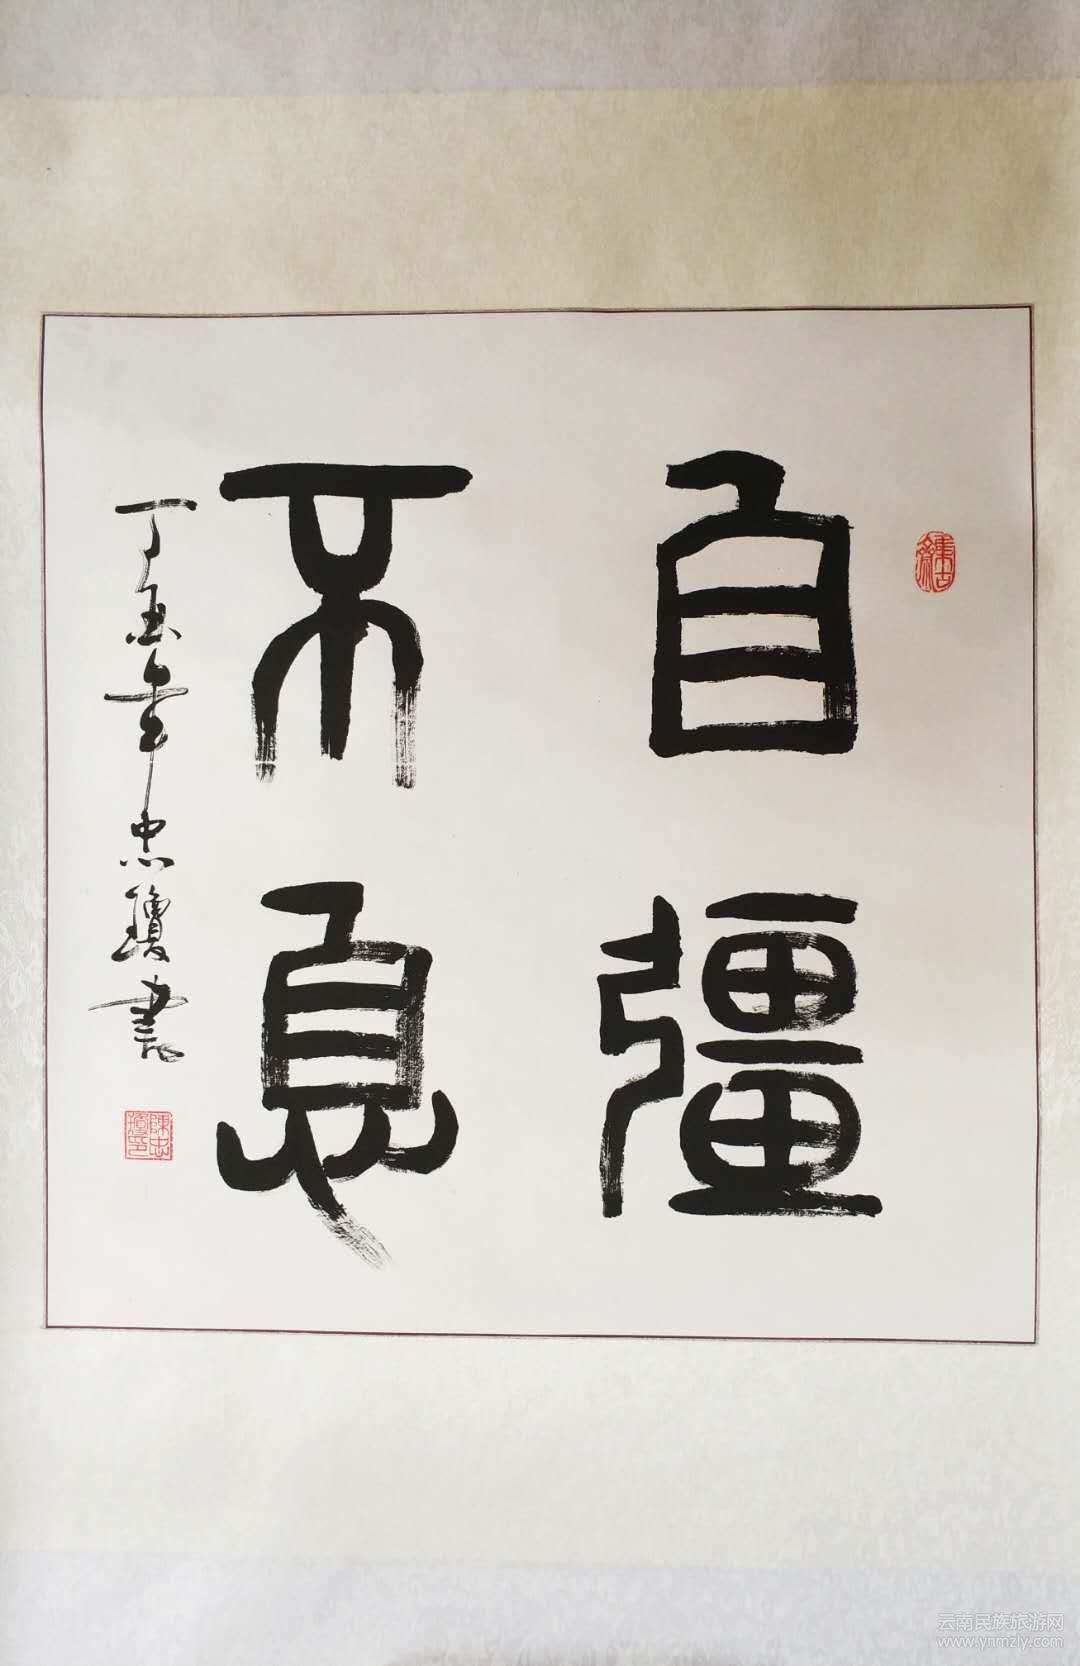 自彊
不息
丁酉年忠瓊書
陳忠
瓊印
云南民族旅游网
www.ynmzly.com